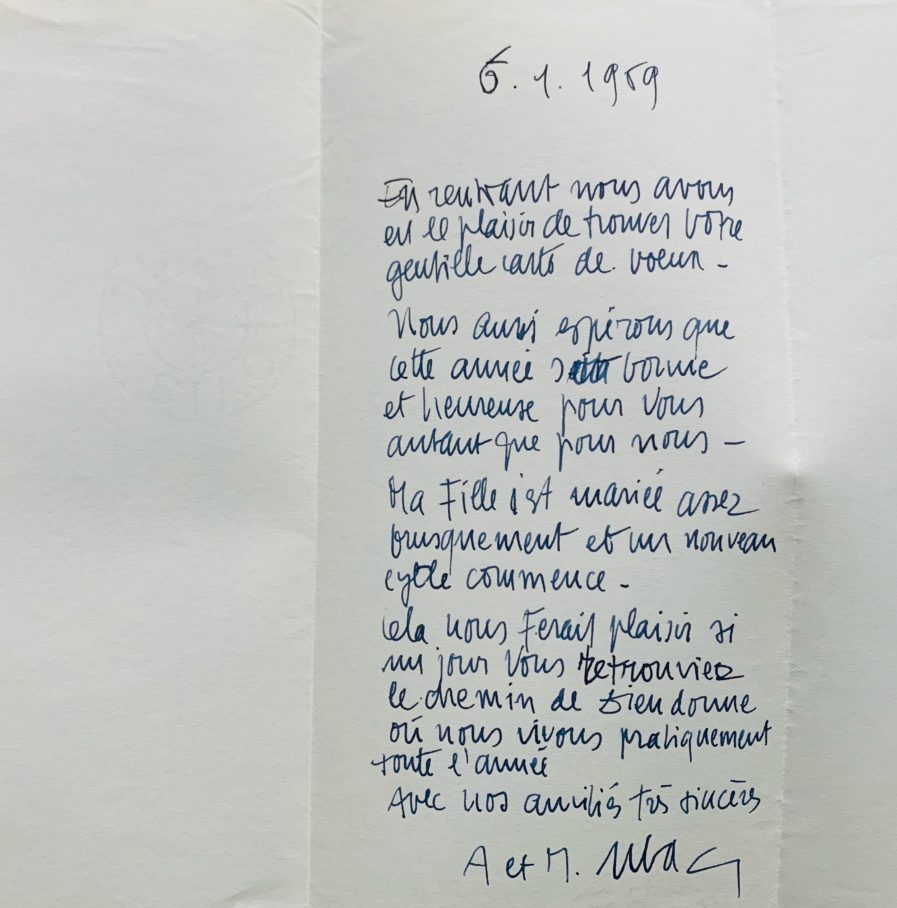 6.1.1969
En rentrant nous avons
eu le plaisir de trouver votre
gentille carte de voeux -
Nous aussi espérons que
cette année soit bonne
et heureuse pour vous
autant que pour nous -
Ma Fille s'est mariée assez
brusquement et un nouveau
cycle commence -
Cela nous Ferait plaisir si
un jour vous retrouviez
le chemin de Dieudonne
où nous vivons pratiquement
toute l'année
Avec nos amitiés très sincères
A et M. Ubac